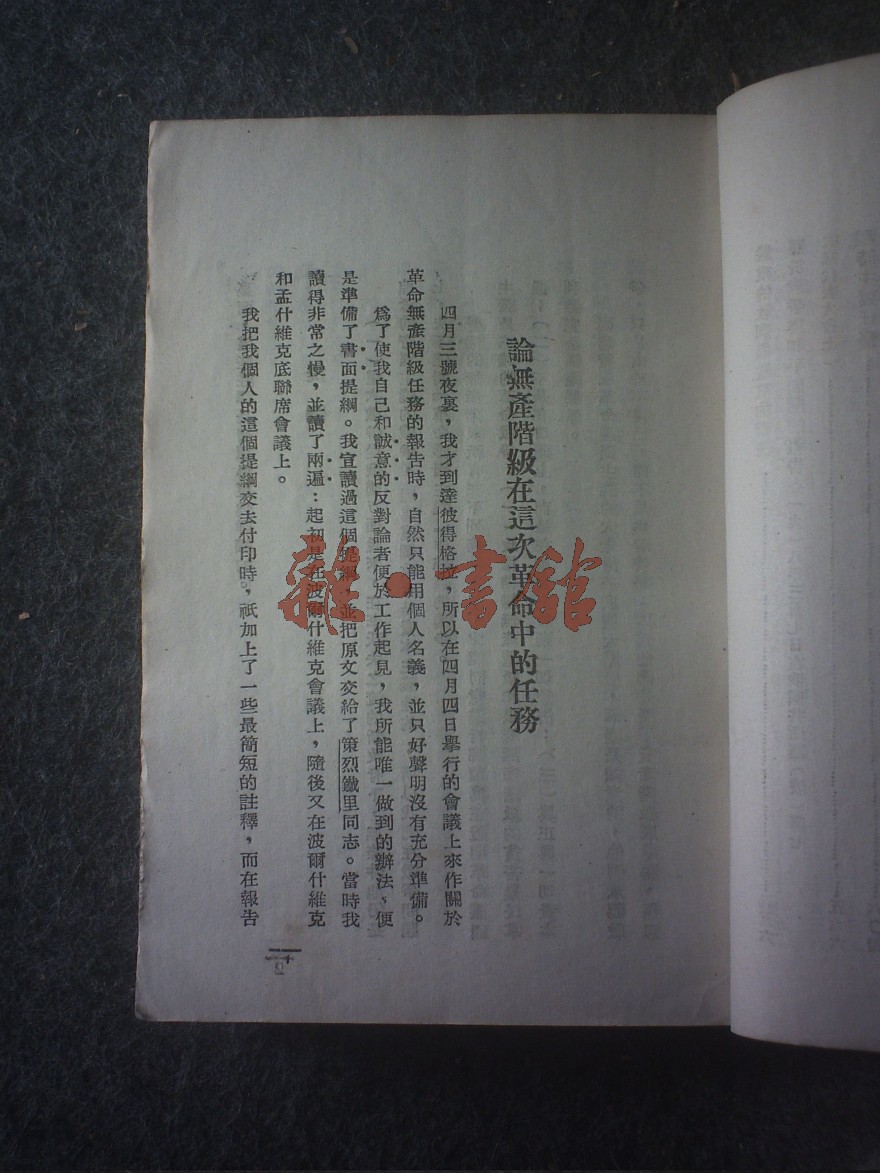 論無產階級在這次革命中的任務
四月三號夜裏，我才到達彼得格拉，所以在四月四日舉行的會議上來作關於
革命無產階級任務的報告時，自然只能用個人名義，並只好聲明沒有充分準備。
爲了使我自己和誠意的反對論者便於工作起見，我所能唯一做到的辦法，便
是準備了書面提綱。我宣讀過這個提綱，並把原文交給了策烈鐵里同志。當時我
讀得非常之慢，並讀了兩遍：起初是在波爾什維克會議上，隨後又在波爾什維克
和孟什維克底聯席會議上。
我把我個人的這個提綱交去付印時，祇加上了一些最簡短的註釋，而在報告
雜·書館